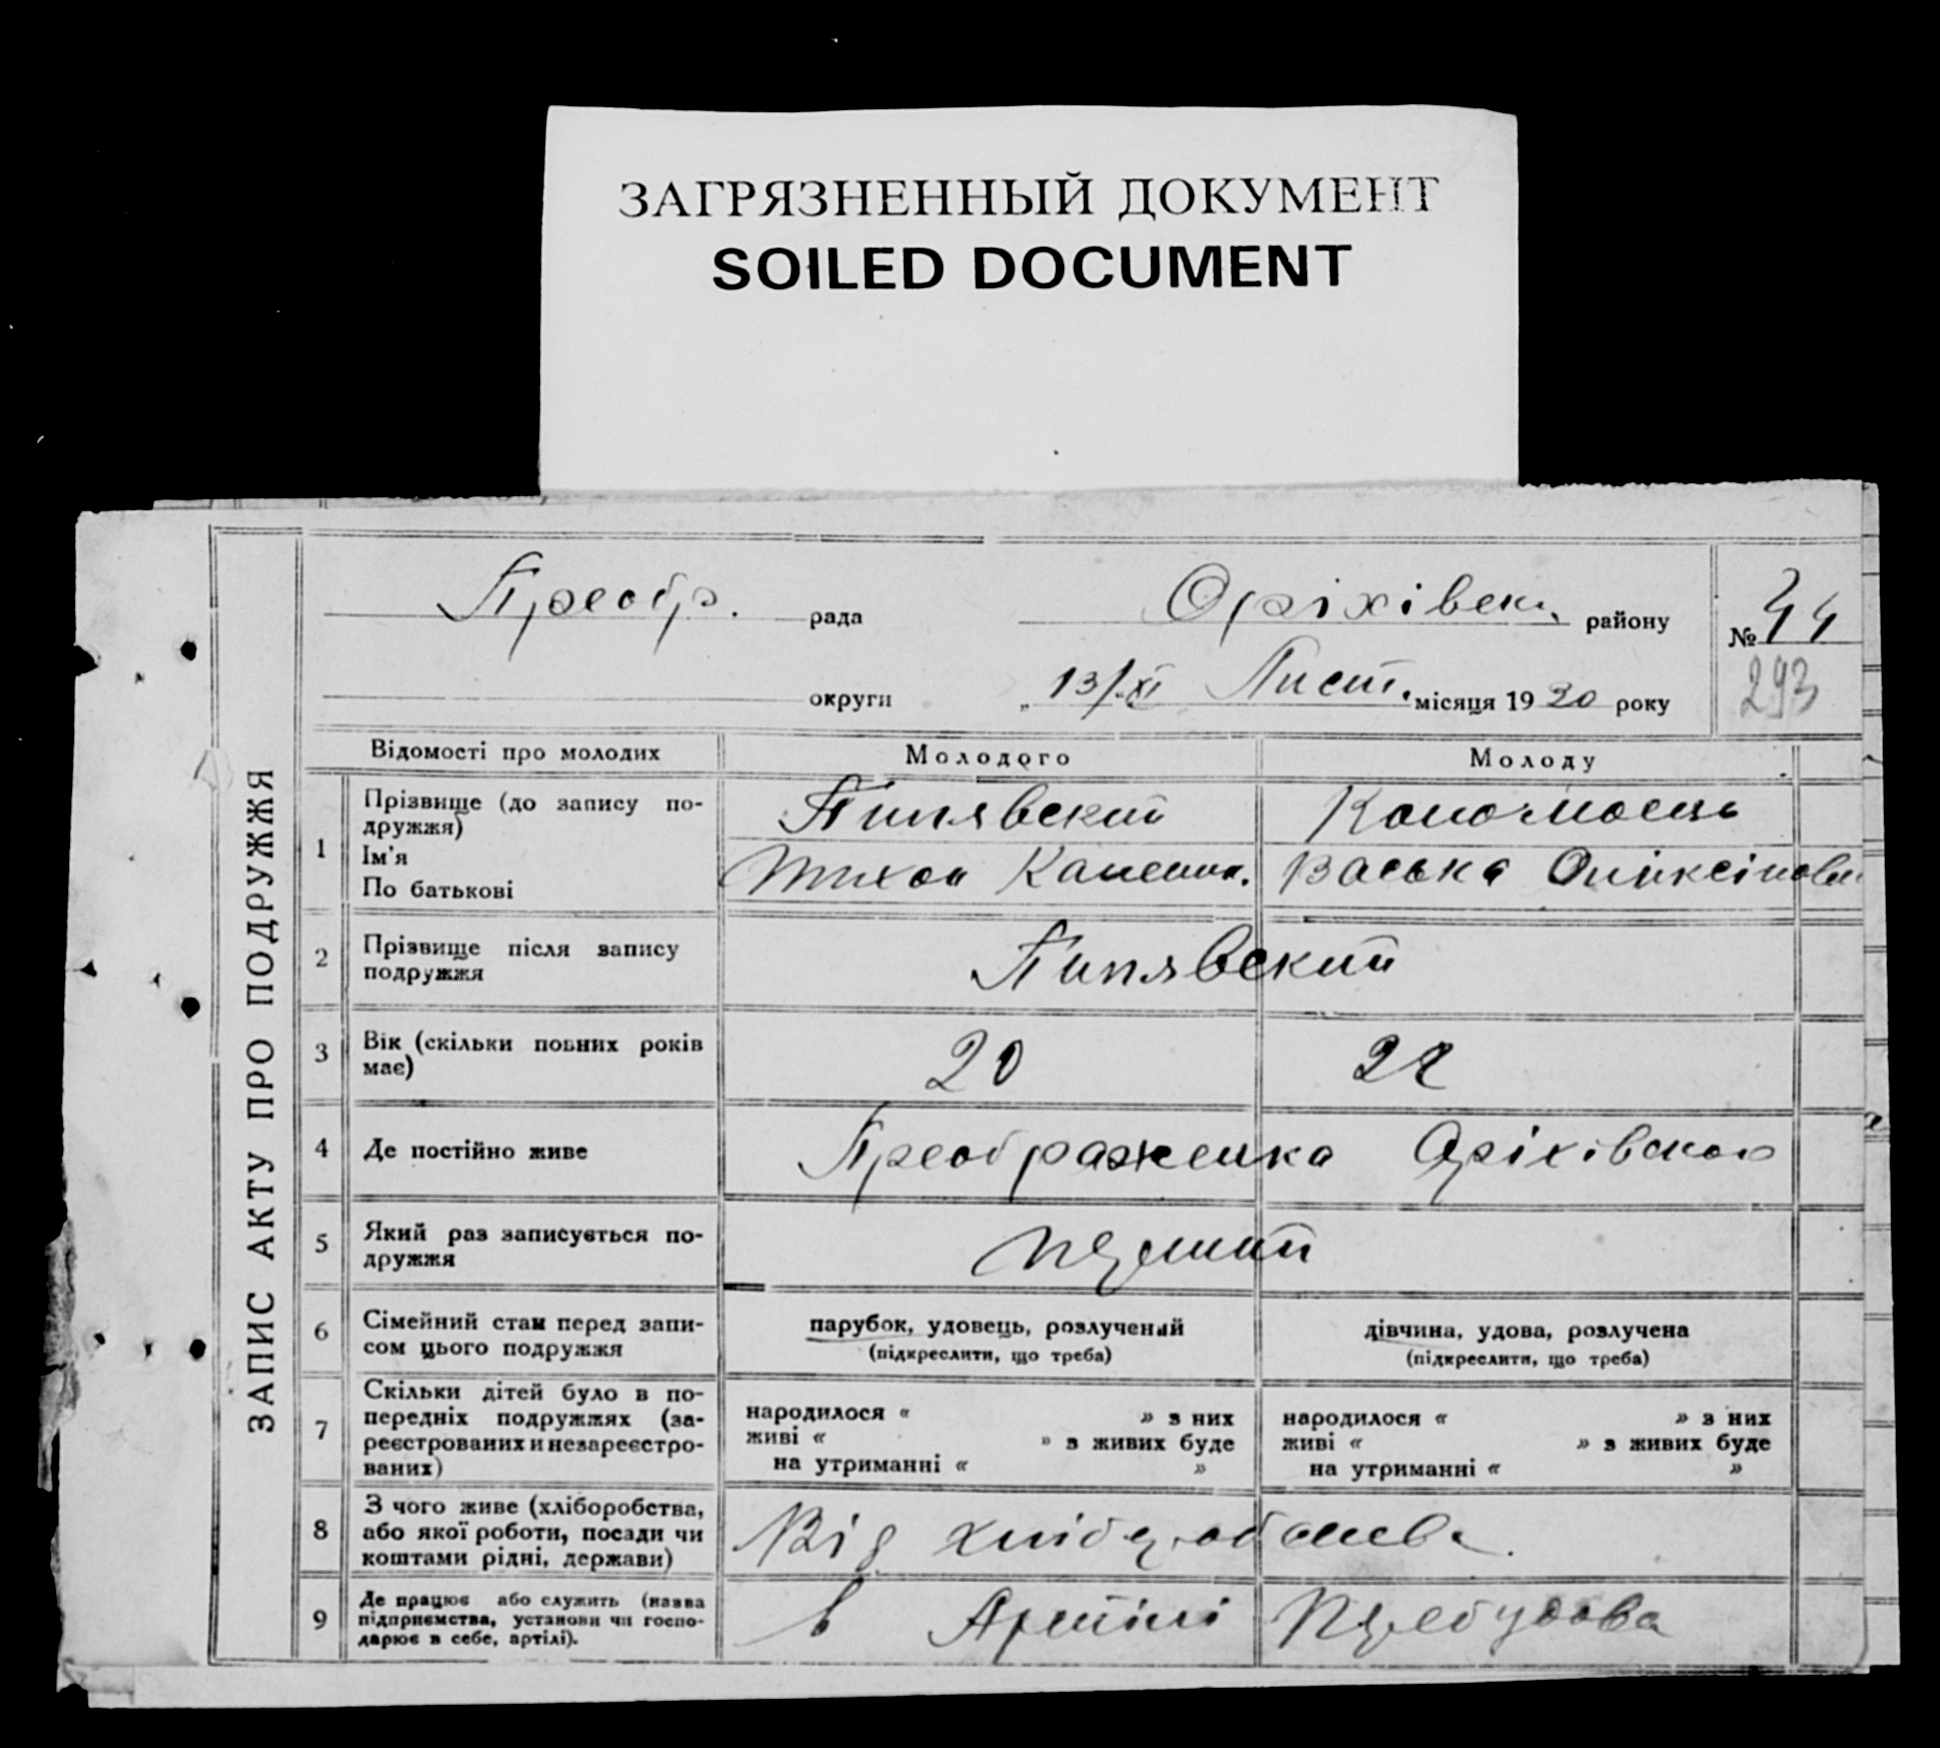 ЗАГРЯЗНЕННЫЙ ДОКУМЕНТ
SOILED DOCUMENT
Преобр. рада Оріхівськ. району № 44
округи „ 13/XI Лист. місяця 19 30 року 293
ЗАПИС АКТУ ПРО ПОДРУЖЖЯ
Відомості про молодих Молодого Молоду
1 Прізвище (до запису по-
дружжя)
Ім'я
По батькові
Пипявский
Тихон
Васька
2 Прізвище після запису
подружжя
Пипявский
3 Вік (скільки повних років
має)
20 22
4 Де постійно живе Преображенка Оріхівського
5 Який раз записується по-
дружжя
перший
6 Сімейний стан перед запи-
сом цього подружжя
парубок, удовець, розлучений
(підкреслити, що треба)
дівчина, удова, розлучена
(підкреслити, що треба)
7 Скільки дітей було в по-
передніх подружжях (за-
реєстрованих и незареєстро-
ваних)
народилося « » з них
живі « » з живих буде
на утриманні « »
народилося « » з них
живі « » з живих буде
на утриманні « »
8 З чого живе (хліборобства,
або якої роботи, посади чи
коштами рідні, держави)
Від
9 Де працює або служить (назва
підприємства, установи чи госпо-
дарює в себе, артілі).
в Артілі